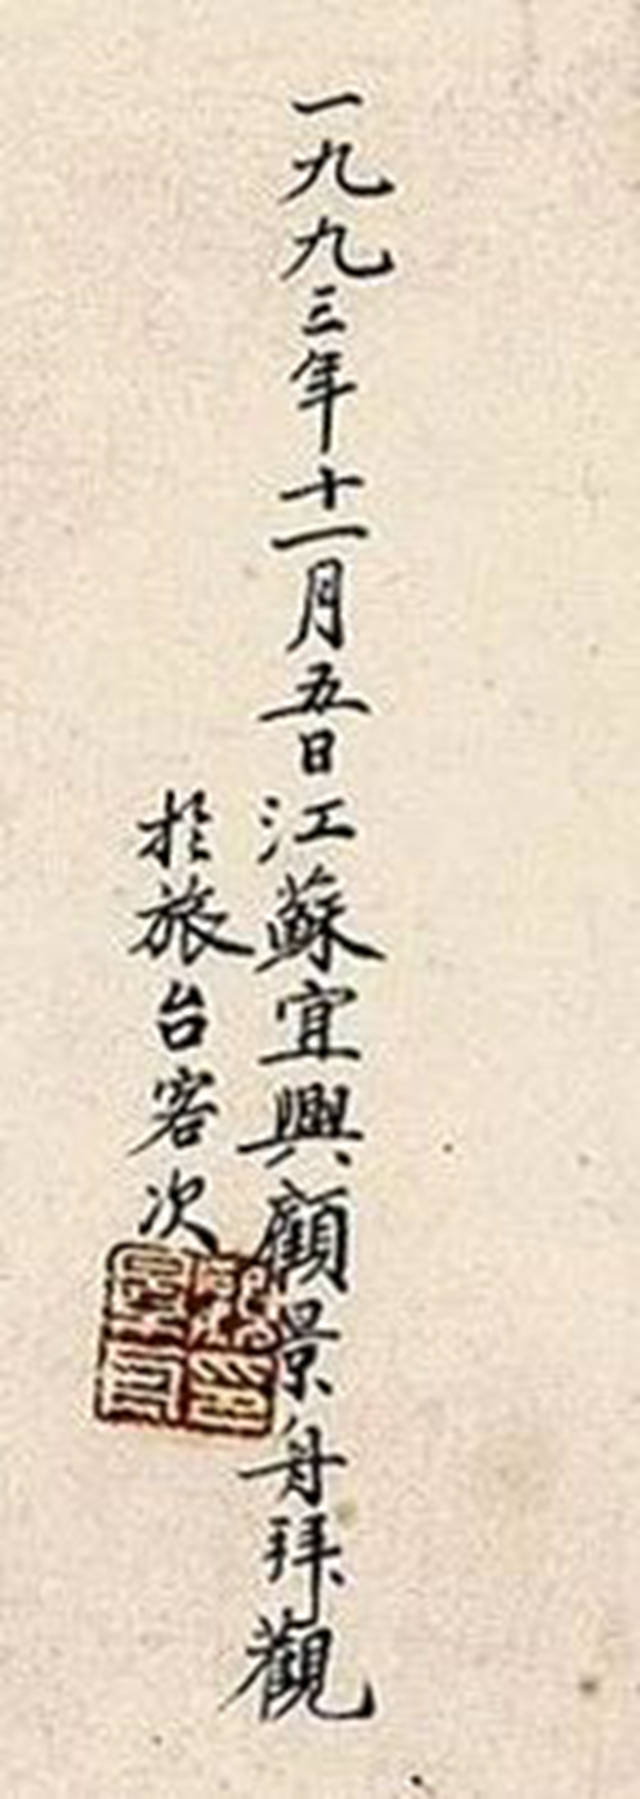 一九九三年十一月五日江蘇宜興顧景舟拜觀
於旅台客次